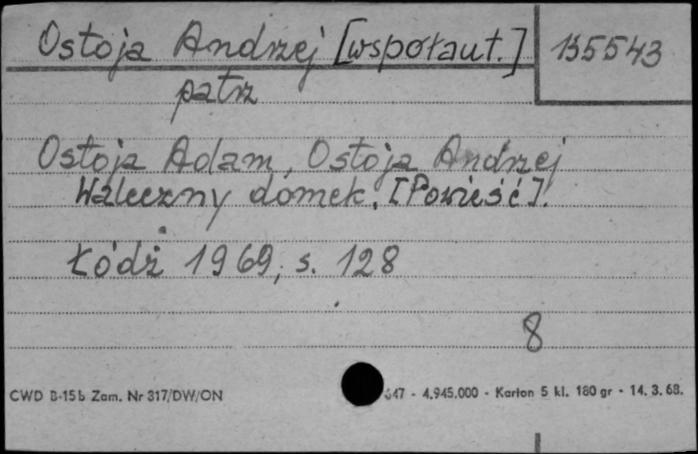 Ostoja Andrzej [współaut.] 135543
patrz
Ostoja Adam, Ostoja Andrzej
Waleczny domek. [Powieść].
Łódź 1969, s. 128
8
CWD B-15b Zam. Nr 317/DW/ON 647 - 4.945.000 - Karton 5 kl. 180 gr - 14. 3. 68.